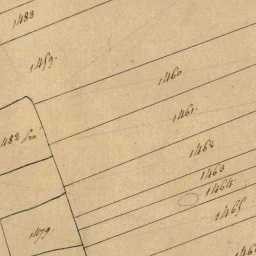 1483
1459.
1460
1461.
1482 bis
1462
1463
1464
1479
1465